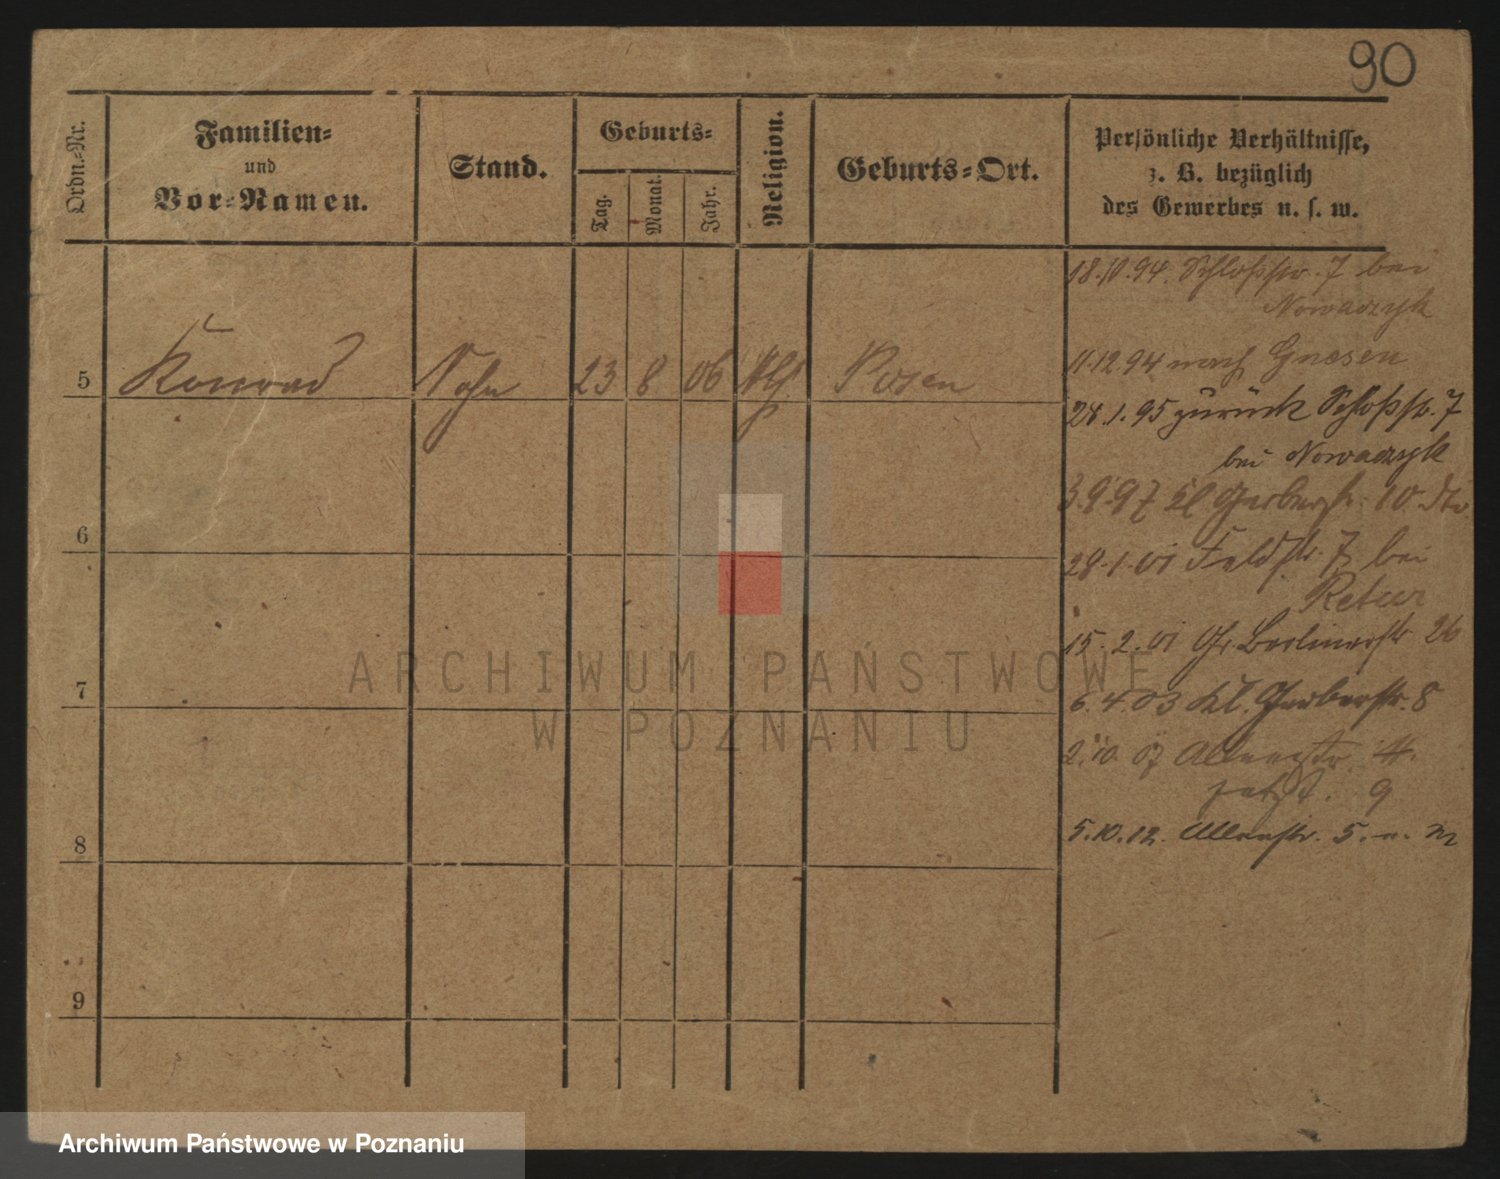 90
Ordn.-Nr.
Familien-
und
Vor-Namen.
Stand.
Geburts-
Tag.
Monat.
Jahr.
Religion.
Geburts-Ort.
Persönliche Verhältnisse,
z. B. bezüglich
des Gewerbes u. s. w.
18.10.94. Schloßstr. 7 bei
Nowaczyk
5 Konrad Sohn 23 8 06 Posen
11.12.94 nach Gnesen
28.1.95 zurück Schloßstr. 7
bei Nowaczyk
3.9.97 Kl. Gerberstr. 10 dto
6
28.1.01 Feldstr. 7 bei
15.2.01 Gr. Berlinerstr. 26
7
6.4.03 Kl. Gerberstr. 8
2.10.07
jetzt. 9
8
5.10.12. 5.
9
ARCHIWUM PAŃSTWOWE
W POZNANIU
Archiwum Państwowe w Poznaniu